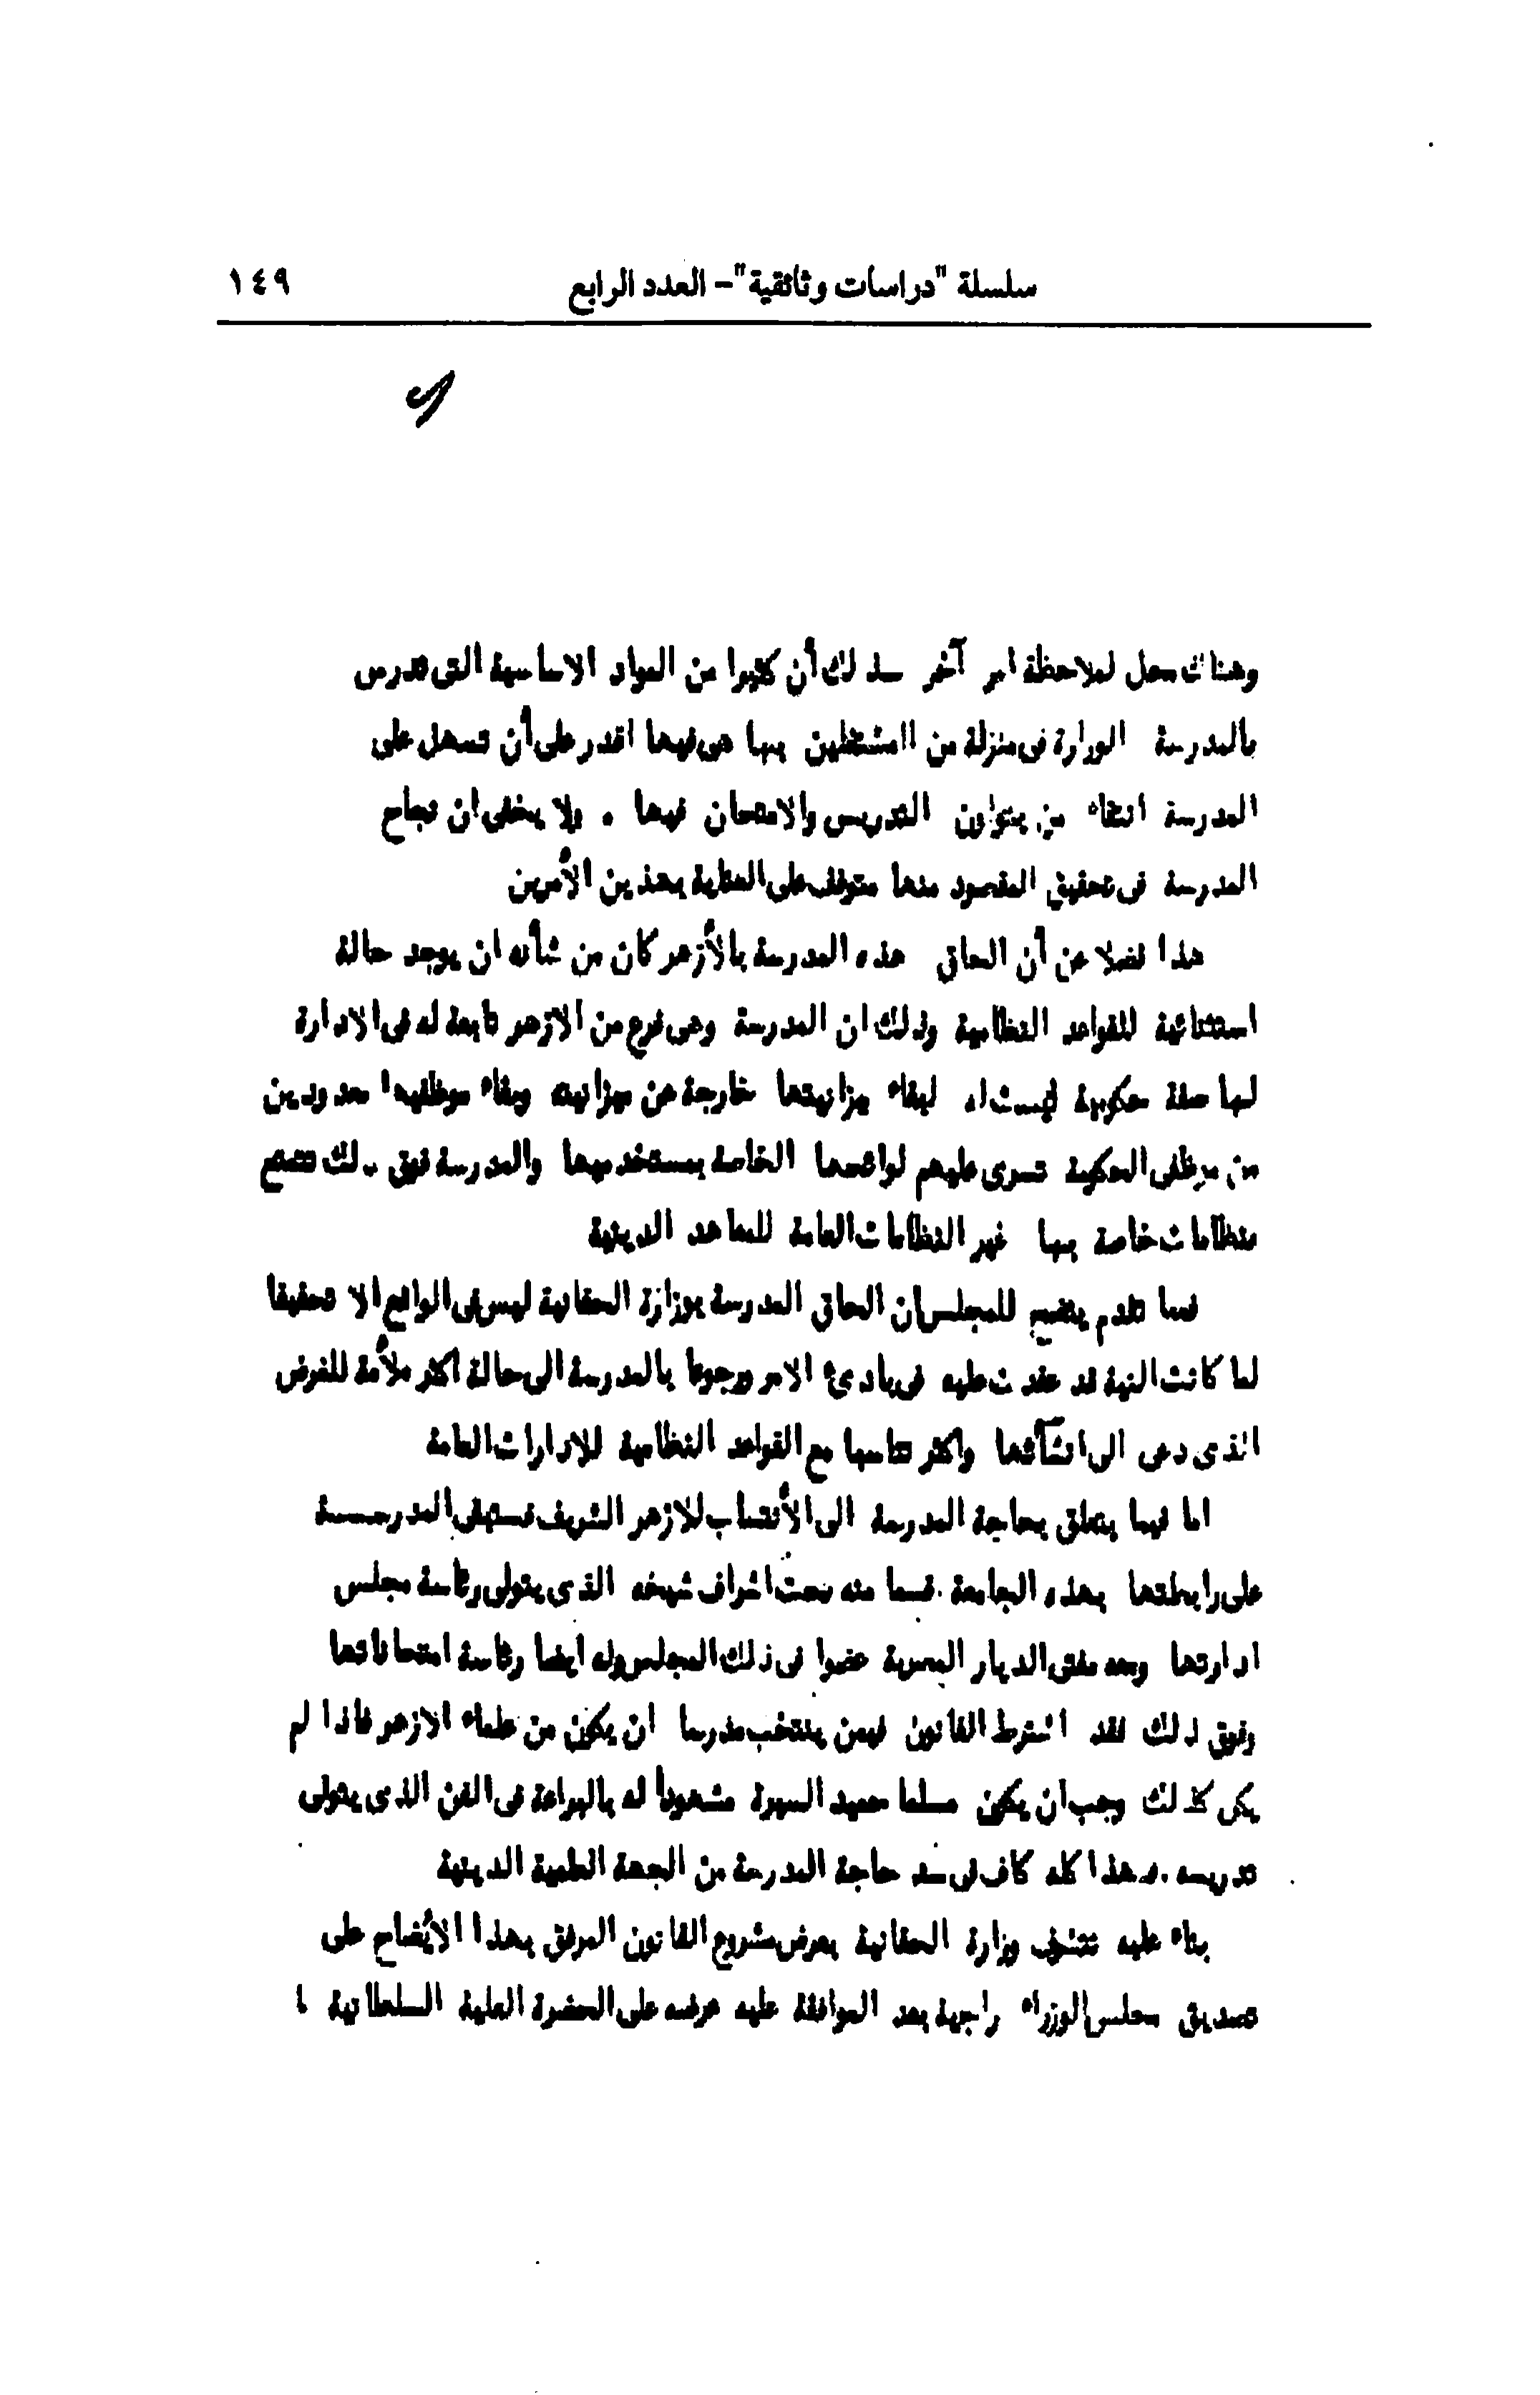 سلسلة "دراسات وثائقية"- العدد الرابع ١٤٩
وهناك محل لملاحظة امر آخر ـ ذلك أن كثيرا من المواد الاساسية التى تدرس
بالمدرسة الوزارة فى منزلة من المشتغلين بها هى فيها اقدر على أن تسهل على
المدرسة انتقاء من يتولون التدريس والامتحان فيها . ولا يخفى ان نجاح
المدرسة فى تحقيق المقصود منها متوقف على العناية بهذين الأمرين
هذا فضلا عن أن الحاق هذه المدرسة بالأزهر كان من شأنه ان يوجد حالة
استثنائية للقواعد النظامية وذلك ان المدرسة وهى فرع من الازهر تابعة له فى الادارة
لها صفة حكومية ليست له لبقاء ميزانيتها خارجة عن ميزانيته وبقاء موظفيها معدودين
من موظفى الحكومة تسرى عليهم لوائحها الخاصة بمستخدميها والمدرسة فوق ذلك تتمتع
بنظامات خاصة بها غير النظامات العامة للمعاهد الدينية
فمما تقدم يتضح للمجلس ان الحاق المدرسة بوزارة الحقانية ليس فى الواقع الا تحقيقا
لما كانت النية قد عقدت عليه فى بادئ الامر ورجوعا بالمدرسة الى حالة اكثر ملأمة للغرض
الذى دعى الى انشآئها واكثر تناسبا مع القواعد النظامية للادارات العامة
اما فيما يتعلق بحاجة المدرسة الى الأنتساب للازهر الشريف فستبقى المدرســـة
على رابطتها بهذه الجامعة . قسما منه تحت اشراف شيخه الذى يتولى رئاسة مجلس
ادارتها ومعه مفتى الديار المصرية عضوا فى ذلك المجلس وله ايضا رئاسة امتحاناتها
وفوق ذلك فقد اشترط القانون فيمن ينتخب مدرسا ان يكون من علماء الازهر فاذا لم
يكن كذلك وجب ان يكون مسلما حميد السيرة مشهودا له بالبراعة فى الفن الذى يتولى
تدريسه . وهذا كله كاف فى سد حاجة المدرسة من الجهة العلمية الدينية
بناء عليه تتشرف وزارة الحقانية بعرض مشروع القانون المرفق بهذا الأيضاح على
تصديق مجلس الوزراء راجية بعد الموافقة عليه عرضه على الحضرة العلية السلطانية